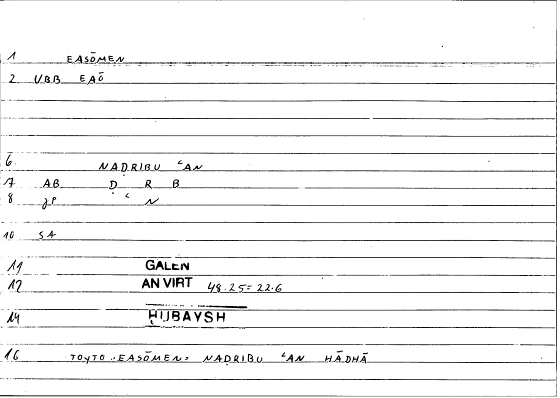 1 EASŌMEN
2 VBB EAŌ
6 NAḌRIBU ʿAN
7 AB Ḍ R B
8 JP ʿ N
10 SA
11 GALEN
12 AN VIRT 48.25=22.6
14 ḤUBAYSH
16 TOYTO EASŌMEN: NAḌRIBU ʿAN HĀDHĀ